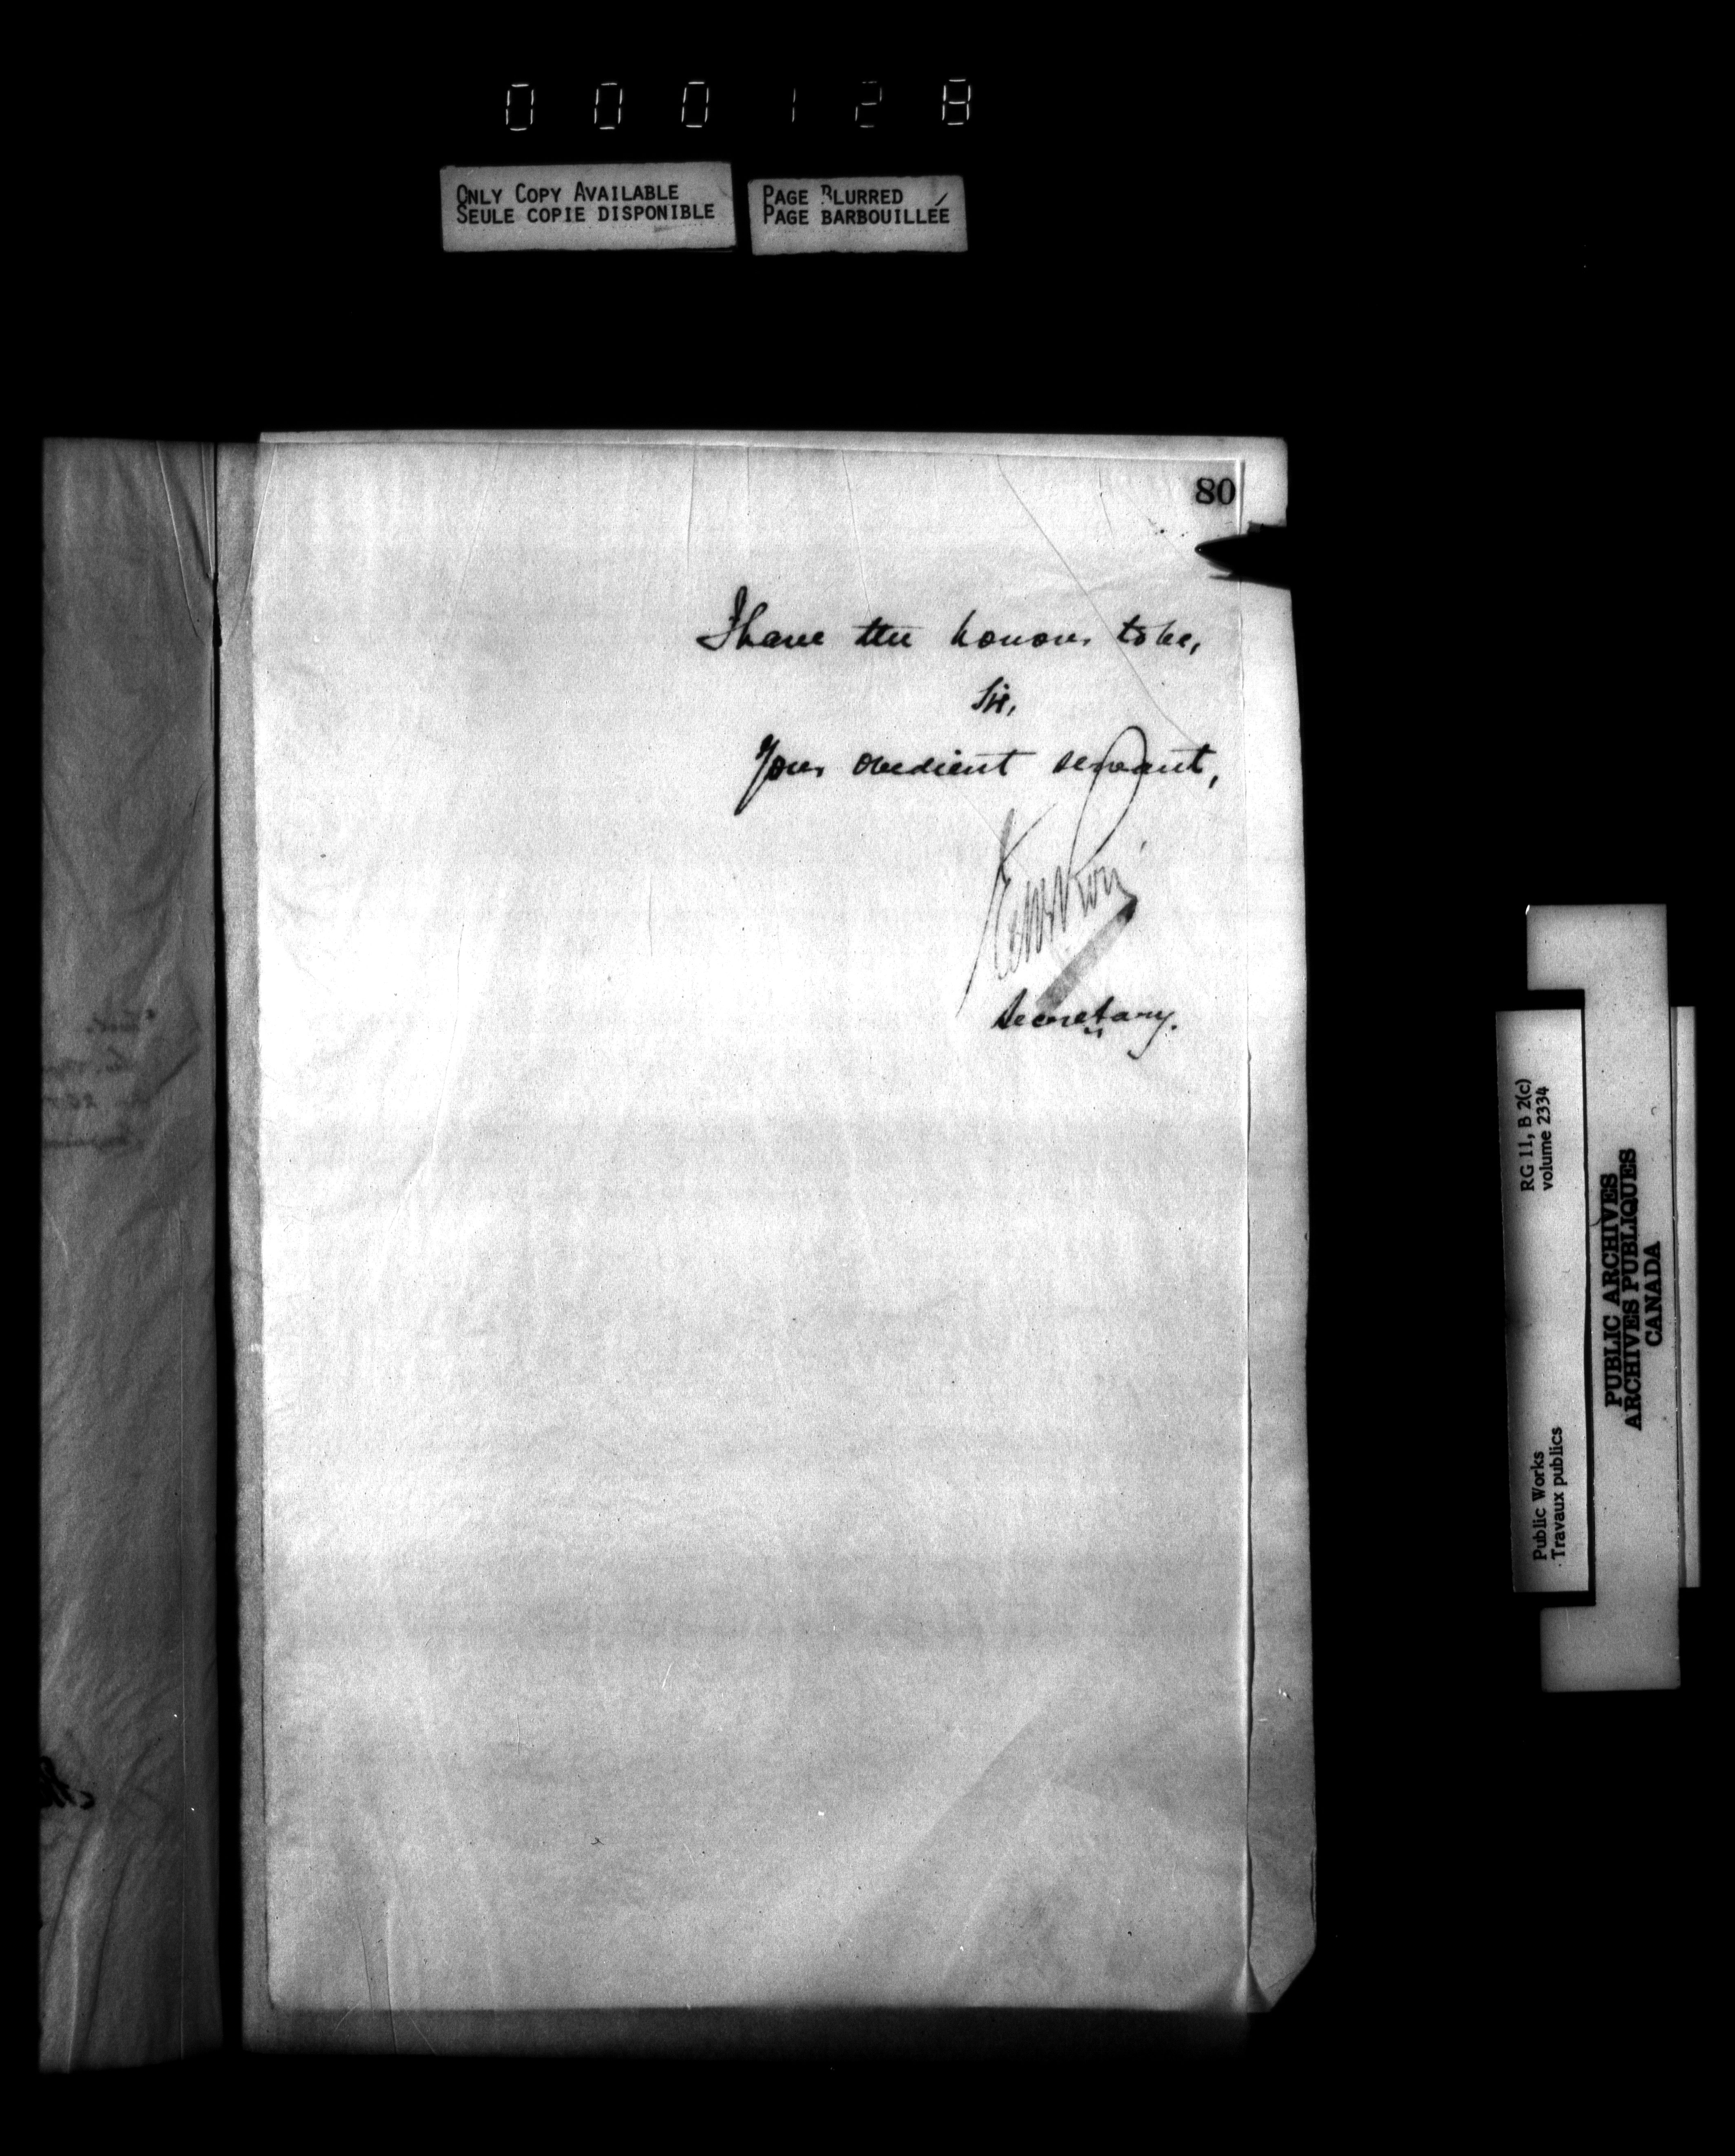 000128
ONLY COPY AVAILABLE
SEULE COPIE DISPONIBLE
PAGE BLURRED
PAGE BARBOUILLÉE
80
I have the honour to be,
Sir,
Your obedient servant,
Secretary.
RG 11, B 2(c)
volume 2334
Public Works
Travaux publics
PUBLIC ARCHIVES
ARCHIVES PUBLIQUES
CANADA